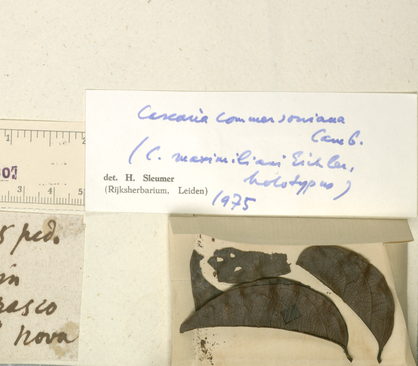 Casearia commersoniana
Camb.
(C. maximiliani Eichler,
holotypus)
det. H. Sleumer
(Rijksherbarium, Leiden)
1975
1
2
3
5 ped.
in
nova